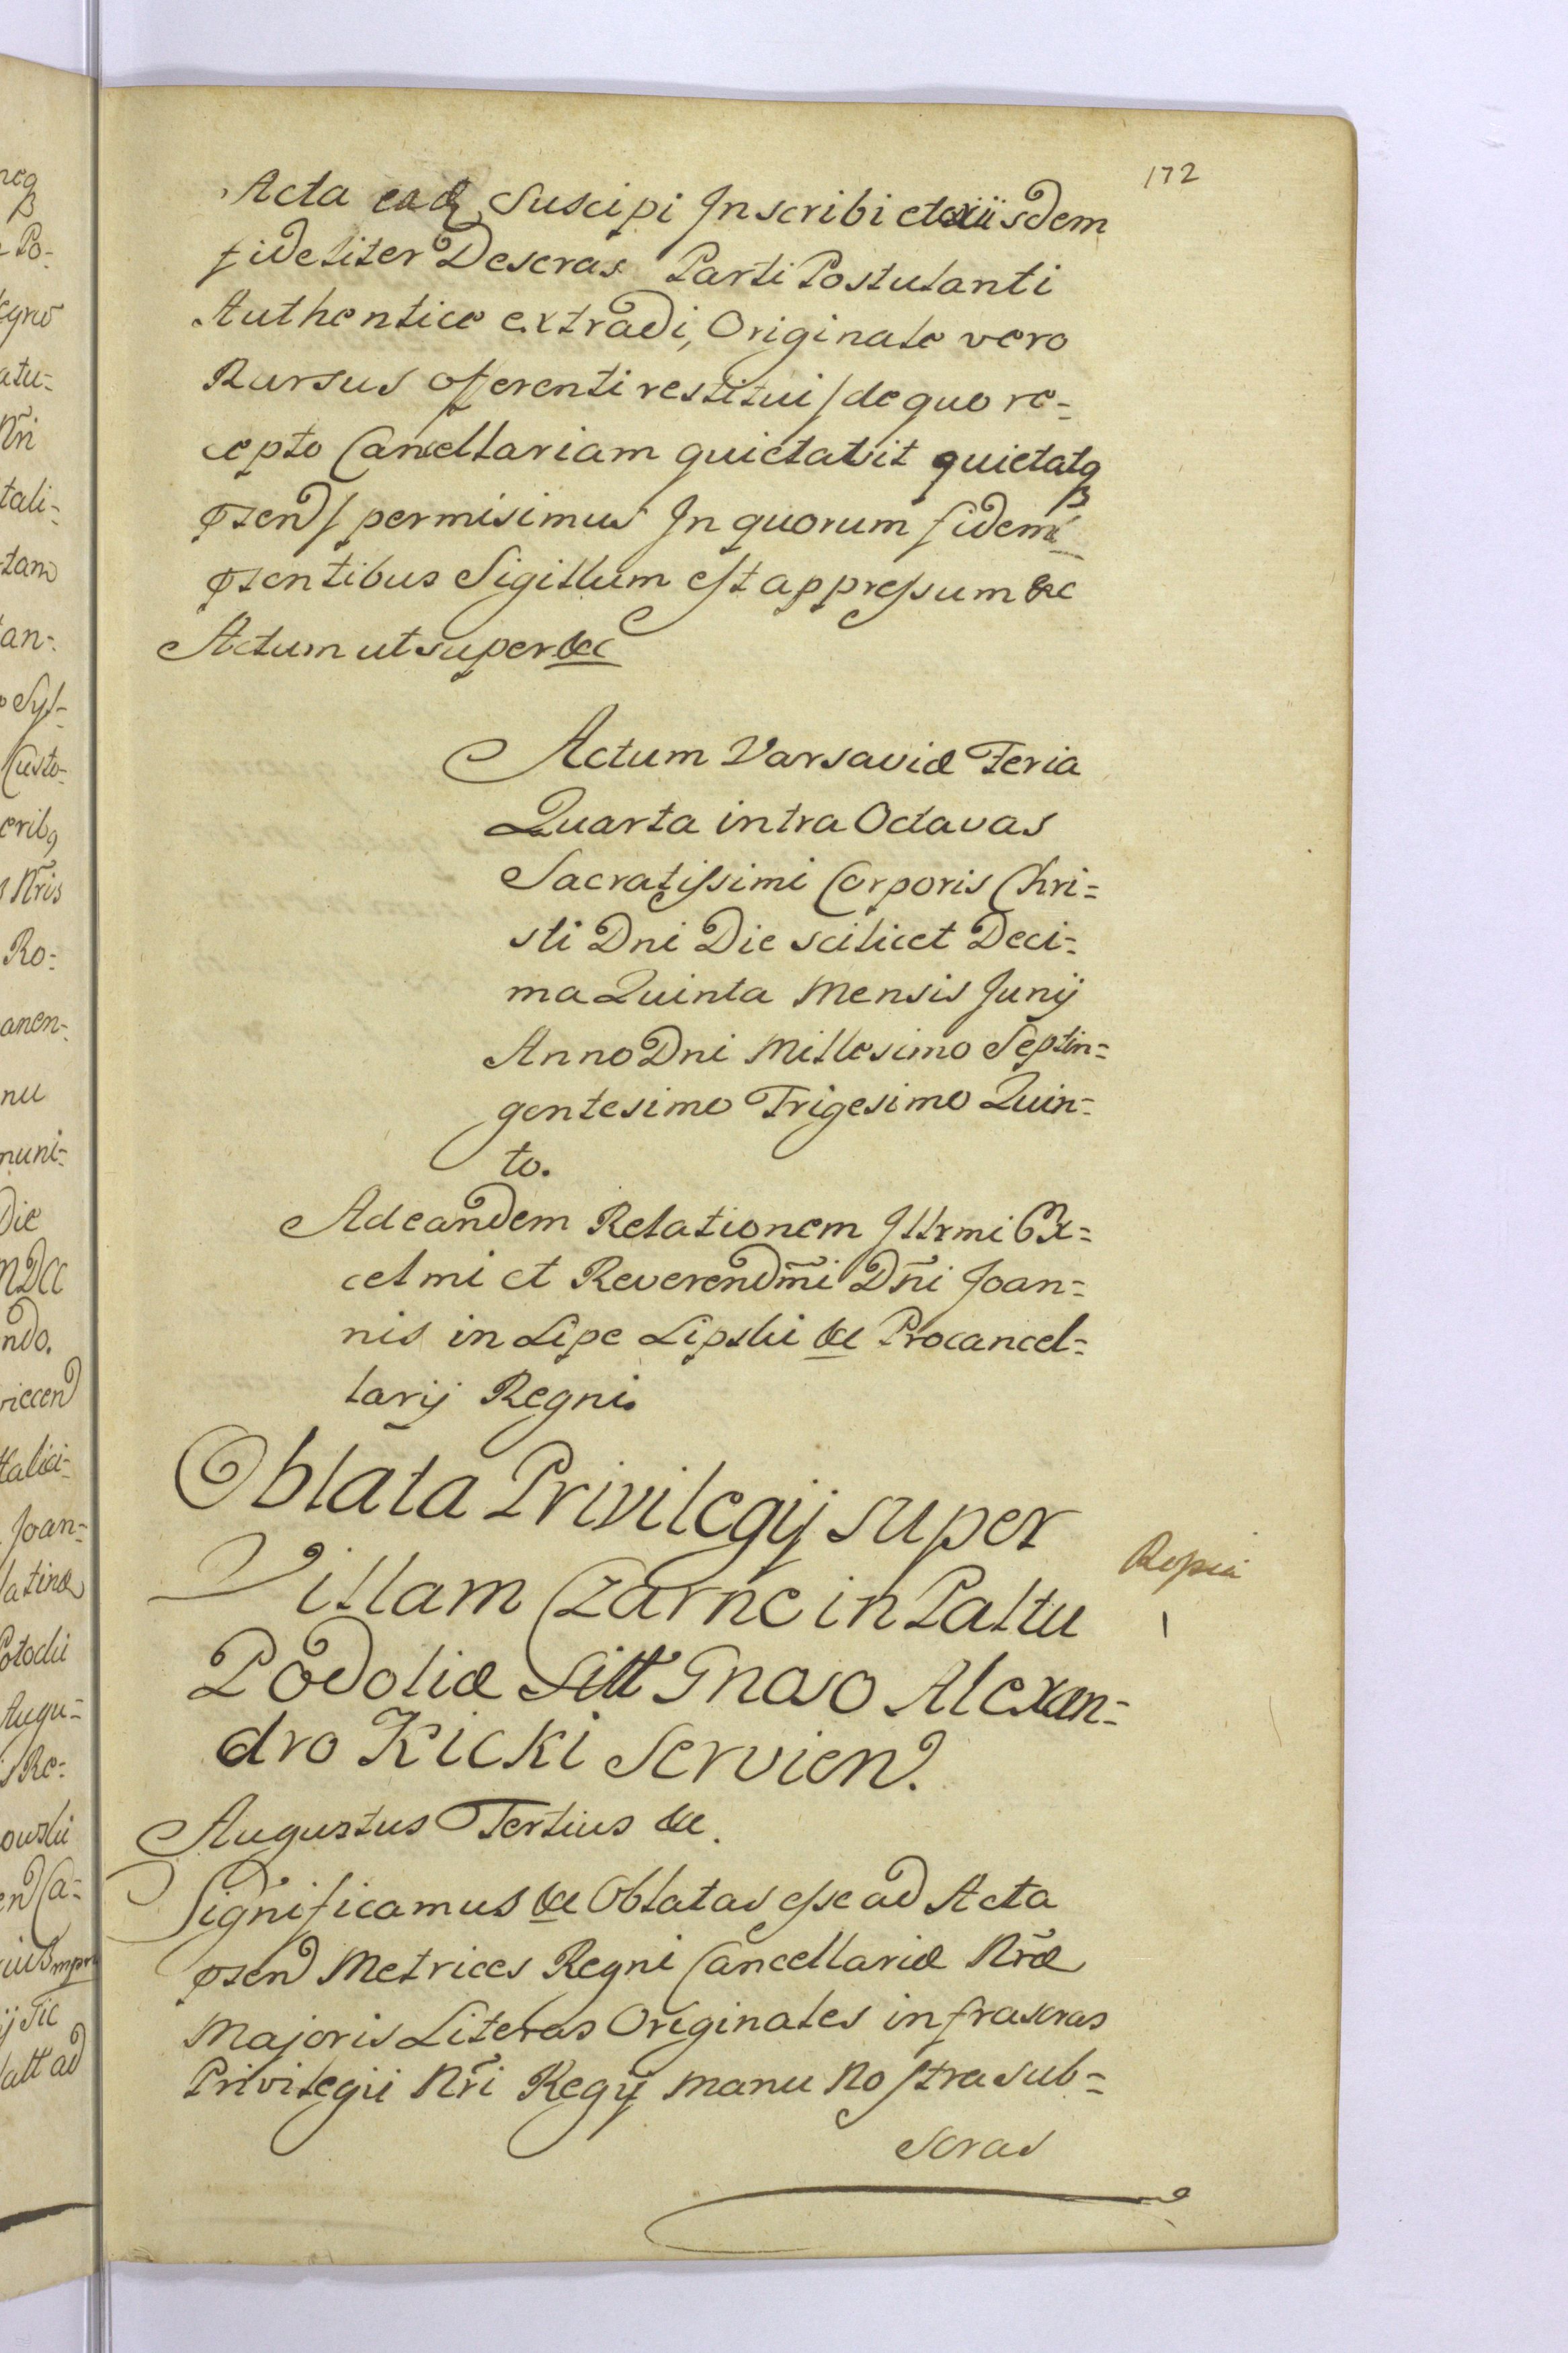 172
Acta eadq Suscipi Inscribi et ex iisdem
fideliter Descras Parti Postulanti
Authentice extradi, Originale vero
Rursus offerenti restitui / de quo re=
cepto Cancellariam quietavit quietatq
pten / permisimus In quorum fidem
ptentibus Sigillum est appressum &c
Actum ut super &c
Actum Varsaviæ Feria
Quarta intra Octavas
Sacratissimi Corporis Chri=
sti Dni Die scilicet Deci=
ma Quinta Mensis Junij
Anno Dni Millesimo Septin=
gentesimo Trigesimo Quin=
to.
Ad eandem Relationem Illrmi Ex=
celmi et Reverendm̃i Dñi Joan=
nis in Lipe Lipski &c Procancel=
larij Regni.
Oblata Privilegij super
Villam Czarne in Paltu
Podoliæ Sitt Gnoso Alexan=
dro Kicki Servien.
Augustus Tertius &c.
Significamus &c Oblatas esse ad Acta
pten Metrices Regni Cancellariæ Nr̃æ
Majoris Literas Originales infrascras
Privilegii Nr̃i Regij manu Nostra sub=
scras